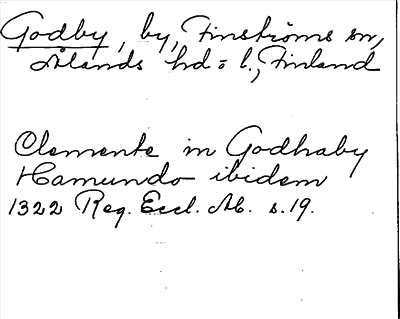 Godby, by, Finströms sn,
Ålands hd = l., Finland
Clemente in Godhaby
Hamundo ibidem
1322 Reg. Eccl. Ab. s. 19.